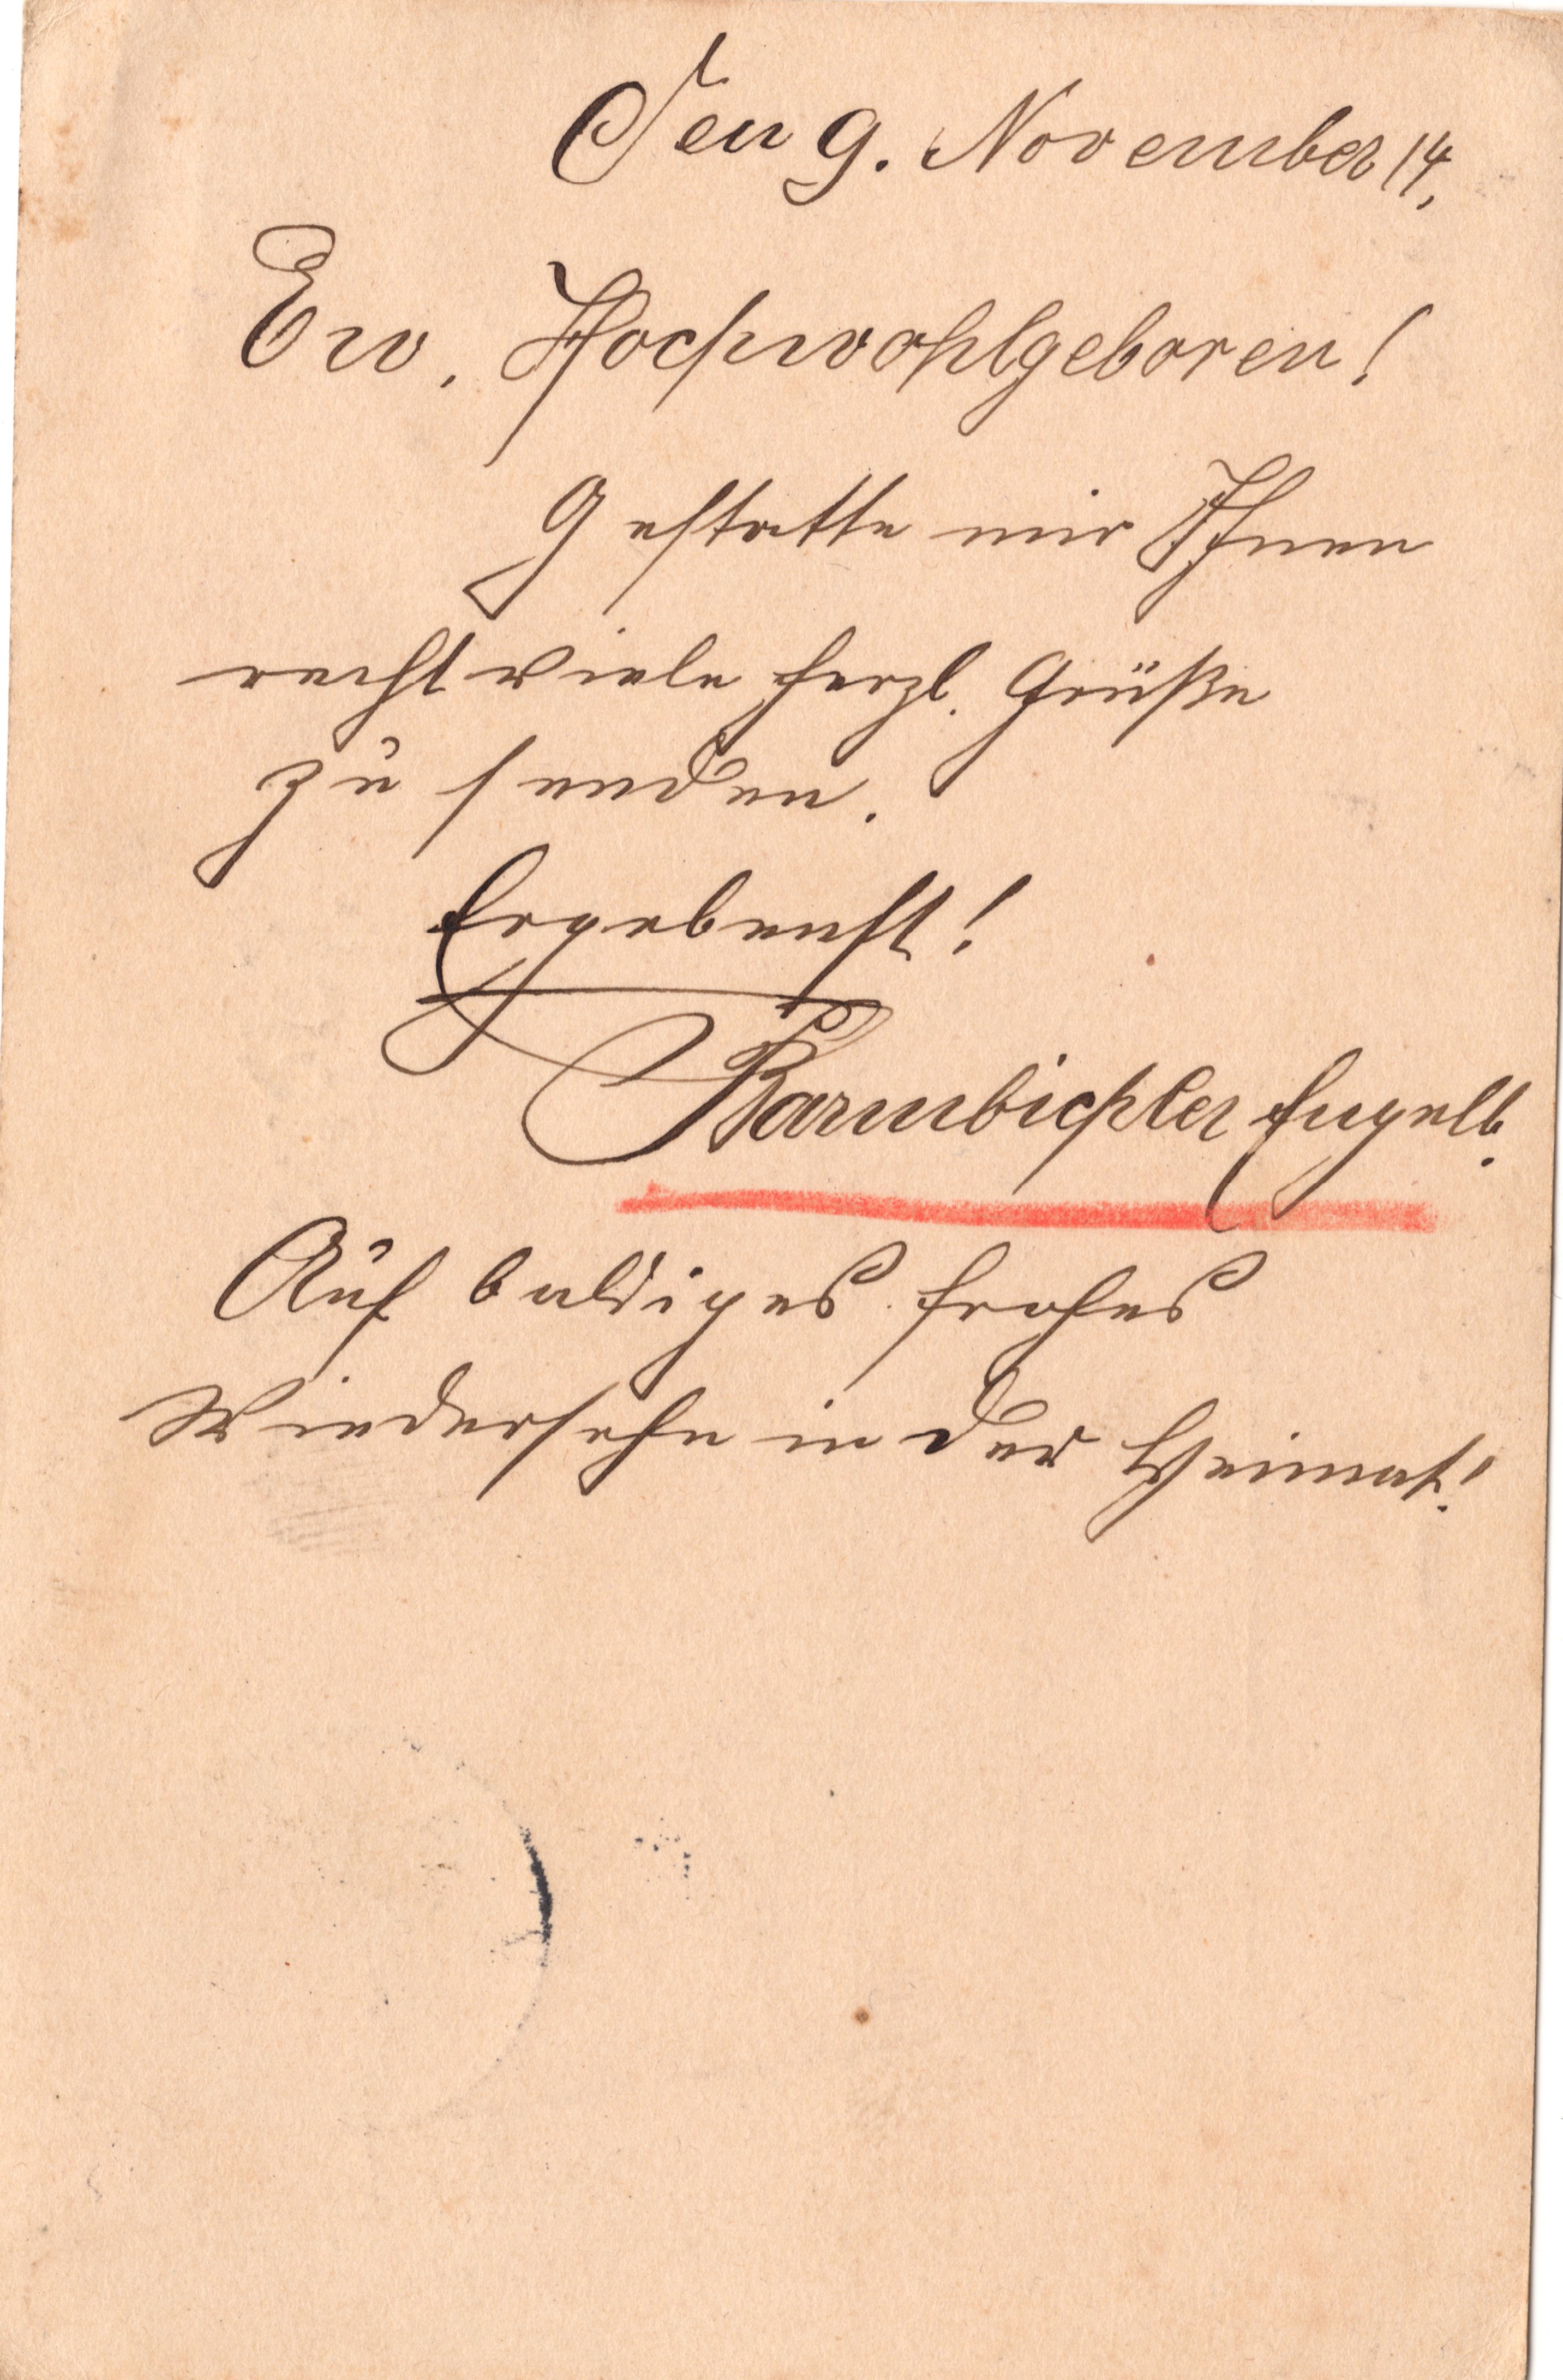 Den 9. November 14,
Ew. Hochwohlgeboren!
Gestatte mir Ihnen
recht viele herzl. Grüße
zu senden.
Ergebenst!
Barmbichler Engelb.
Auf baldiges frohes
Wiedersehn in der Heimat!